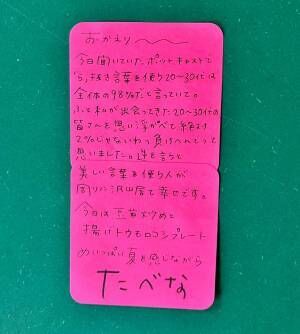 おかえり〜〜
今日聞いていた、ポットキャストで
"ら"抜き言葉を使う20〜30代は
全体の98%だと言っていて。
ふと私が出会ってきた20〜30代の
皆さんを思い浮かべて絶対
2%じゃないわっ負けへんでって
思いました。逆を言うと
美しい言葉を使う人が
周りに沢山居て幸せです。
今日は豆苗炒めと
揚げトウモロコシプレート
めいっぱい夏を感じながら
たべな